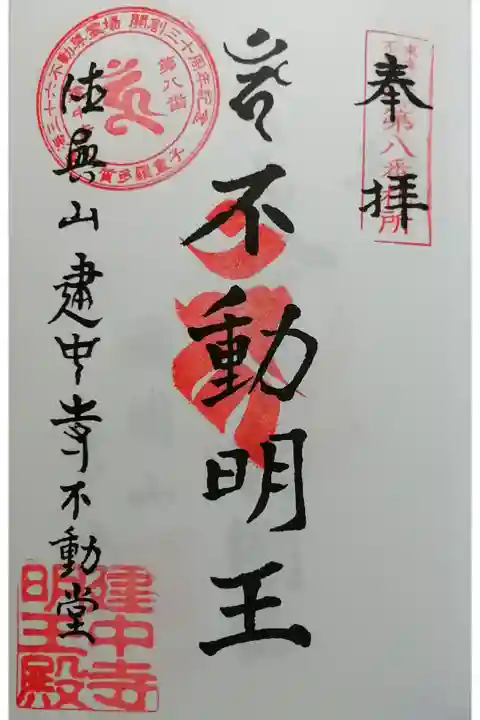 奉拝
第八番札所
不動明王
徳興山建中寺不動堂
三十六不動尊霊場 開創三十周年記念
第八番
建中寺
明王殿